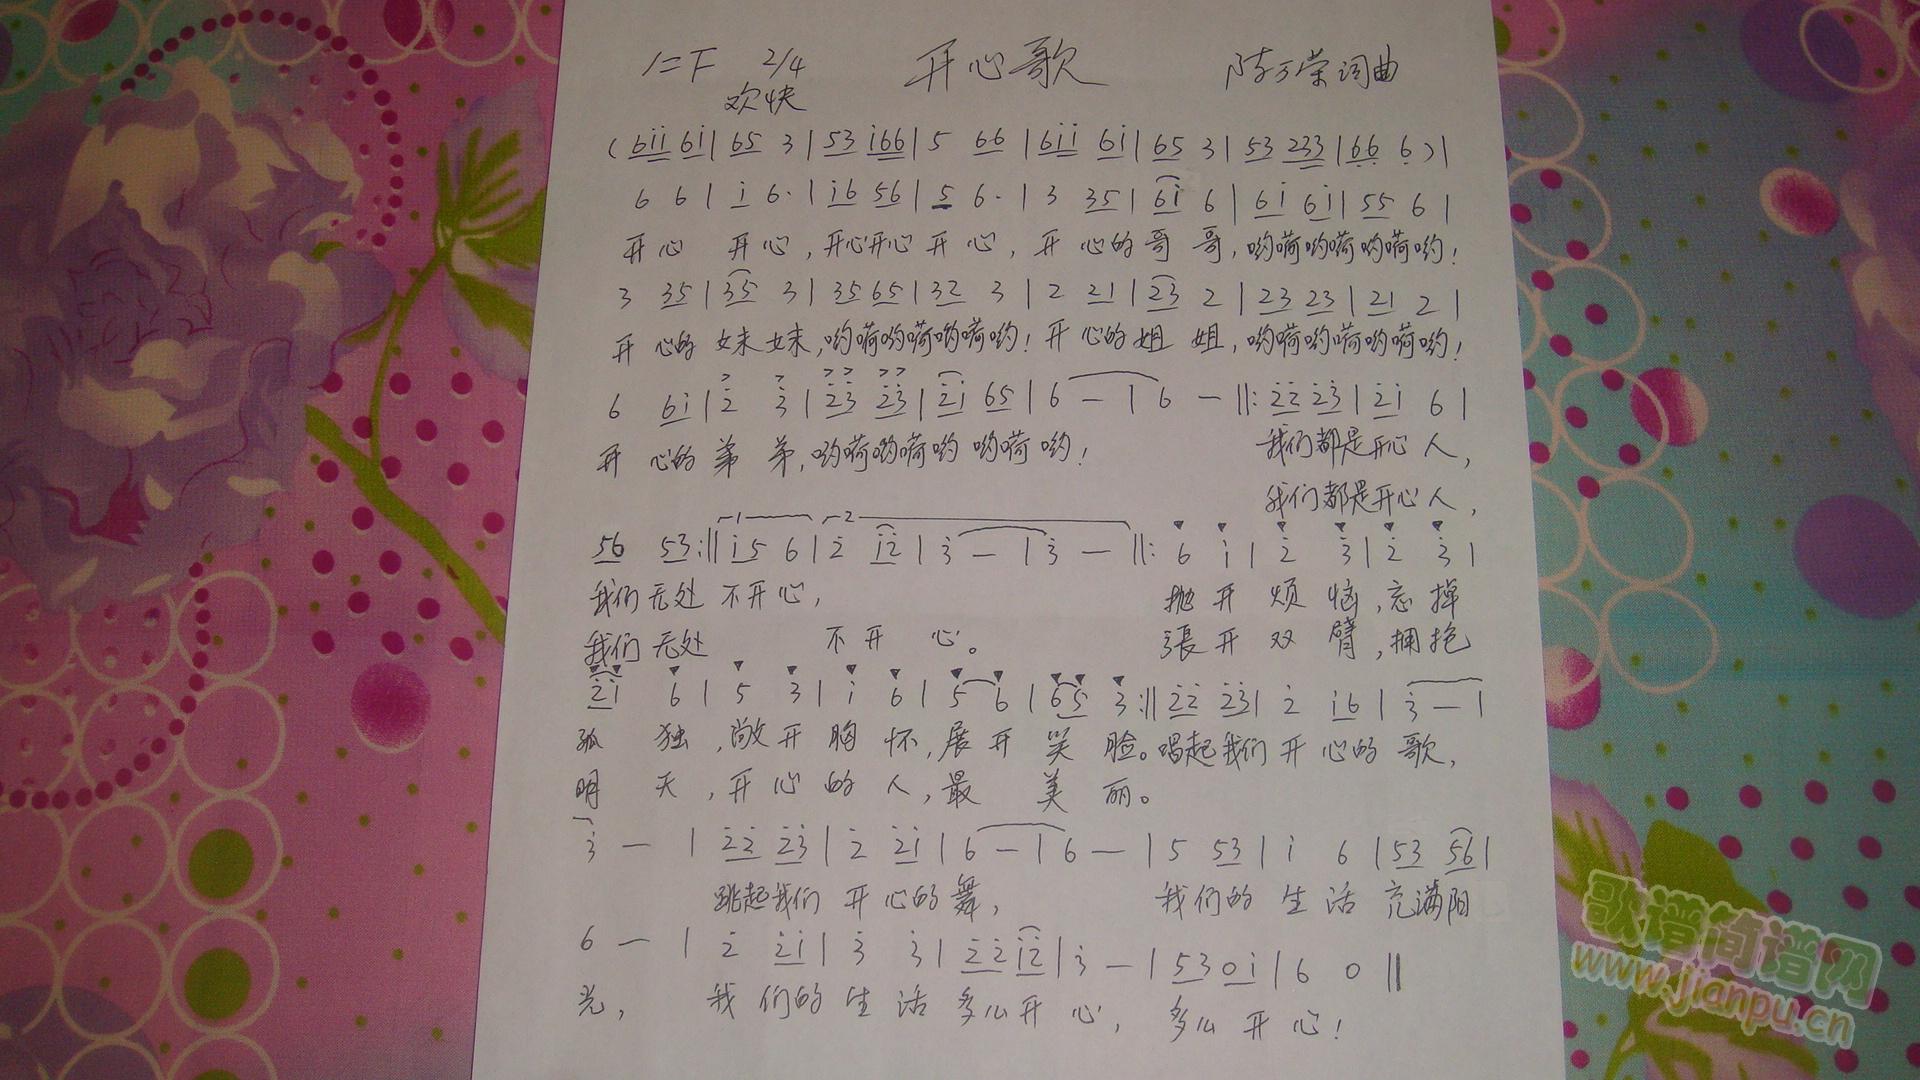 1=F 2/4 开心歌 陈万荣词曲
欢快
(6i̇i̇ 6i̇|65 3|53 i̇66|5 66|6i̇i̇ 6i̇|65 3|53 233|6̣6̣ 6̣)|
6 6|i̇ 6·|i̇6 56|5 6·|3 35|6i̇ 6|6i̇ 6i̇|55 6|
开心 开心,开心开心 开心,开心的哥哥,哟嗬哟嗬哟嗬哟!
3 35|35 3|35 65|32 3|2 21|23 2|23 23|21 2|
开心的妹妹,哟嗬哟嗬哟嗬哟!开心的姐姐,哟嗬哟嗬哟嗬哟!
6 6i̇|2̇ 3̇|2̇3̇ 2̇3̇|2̇i̇ 65|6 —|6 —‖:2̇2̇ 2̇3̇|2̇i̇ 6|
开心的弟弟,哟嗬哟嗬哟哟嗬哟! 我们都是开心人,
我们都是开心人,
56 53:‖1 i̇5 6|2 2̇ i̇2̇|3̇ —|3̇ —‖:6 i̇|2̇ 3̇|2̇ 3̇|
我们无处不开心, 抛开烦恼,忘掉
我们无处 不开心。 張开双臂,拥抱
2̇i̇ 6|5 3|i̇ 6|5 6|65 3:‖2̇2̇ 2̇3̇|2̇ i̇6|3̇ —|
孤独,敞开胸怀,展开笑脸。唱起我们开心的歌,
明天,开心的人,最美丽。
3̇ —|2̇2̇ 2̇3̇|2̇ 2̇i̇|6 —|6 —|5 53|i̇ 6|53 56|
跳起我们开心的舞, 我们的生活充满阳
6 —|2̇ 2̇i̇|3̇ 3̇|2̇2̇ i̇2̇|3̇ —|53 0i̇|6 0‖
光, 我们的生活多么开心, 多么开心!
歌谱简谱网
www.jianpu.cn